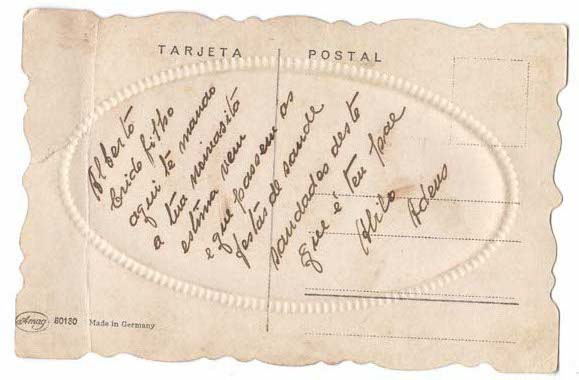 TARJETA POSTAL
Alberto
Crido filho
aqui te mando
a tua noivasita
estima vem
e que passem as
festas de saude
saudades deste
que é teu pae
Abilo
Adeus
Amag 60180 Made in Germany